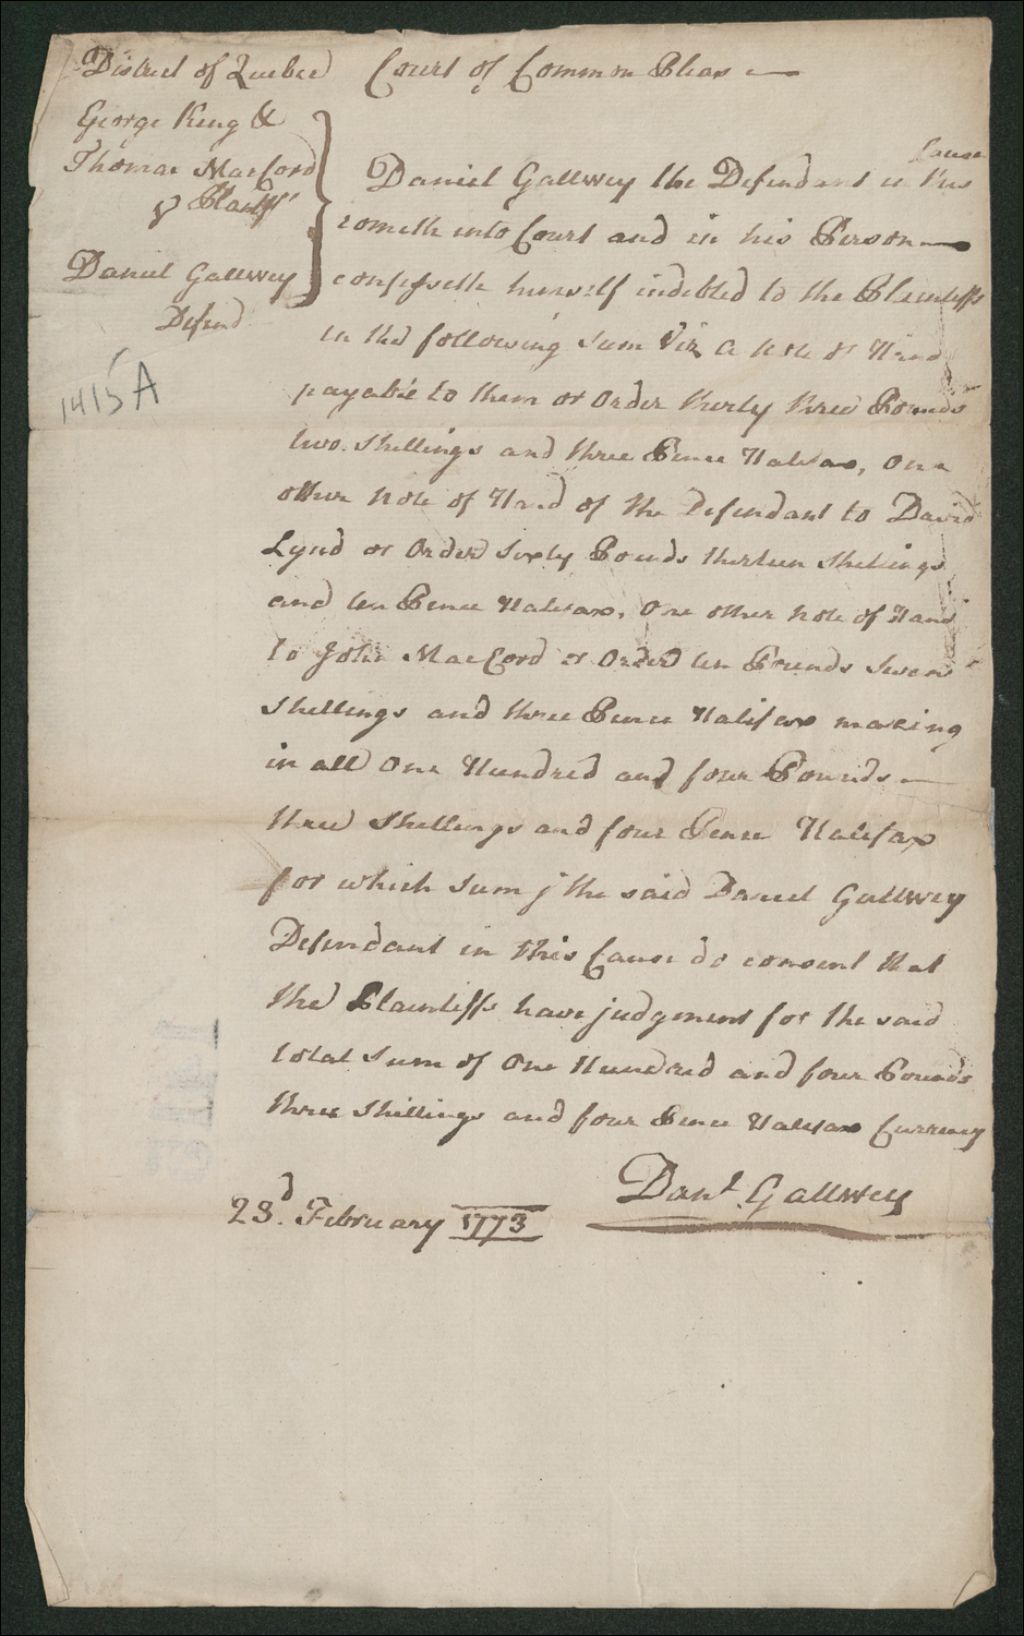 District of Quebec Court of Common Pleas
George King &
Thomas MacCord
Plaintfs
v
Daniel Gallwey
Defend
1415A
Cause
Daniel Gallwey the Defendant in this
cometh into Court and in his Person
confesseth himself indebted to the Plaintiffs
in the following Sum Viz a Note of Hand
payable to them or Order thirty three Pounds
two Shillings and three Pence Halifax, One
other Note of Hand of the Defendant to David
Lynd or Order Sixty Pounds thirteen Shillings
and ten Pence Halifax, One other Note of Hand
to John MacCord or Order ten Pounds Seven
Shillings and three Pence Halifax making
in all One Hundred and four Pounds
three Shillings and four Pence Halifax
for which Sum j the said Daniel Gallwey
Defendant in this Cause do consent that
the Plaintiffs have judgment for the said
total Sum of One Hundred and four Pounds
three Shillings and four Pence Halifax Currency
Danl. Gallwey
23d. February 1773